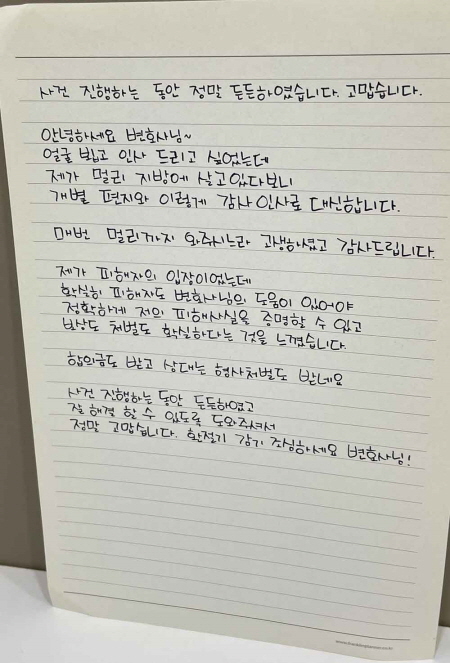 사건 진행하는 동안 정말 든든하였습니다. 고맙습니다.
안녕하세요 변호사님~
얼굴 뵙고 인사 드리고 싶었는데
제가 멀리 지방에 살고있다보니
개별 편지와 이렇게 감사인사로 대신합니다.
매번 멀리까지 와주시느라 고생하였고 감사드립니다.
제가 피해자의 입장이었는데
확실히 피해자도 변호사님의 도움이 있어야
정확하게 저의 피해사실을 증명할 수 있고
보상도 처벌도 확실하다는 것을 느꼈습니다.
합의금도 받고 상대는 형사처벌도 받네요
사건 진행하는 동안 든든하였고
잘 해결 할 수 있도록 도와주셔서
정말 고맙습니다. 환절기 감기 조심하세요 변호사님!